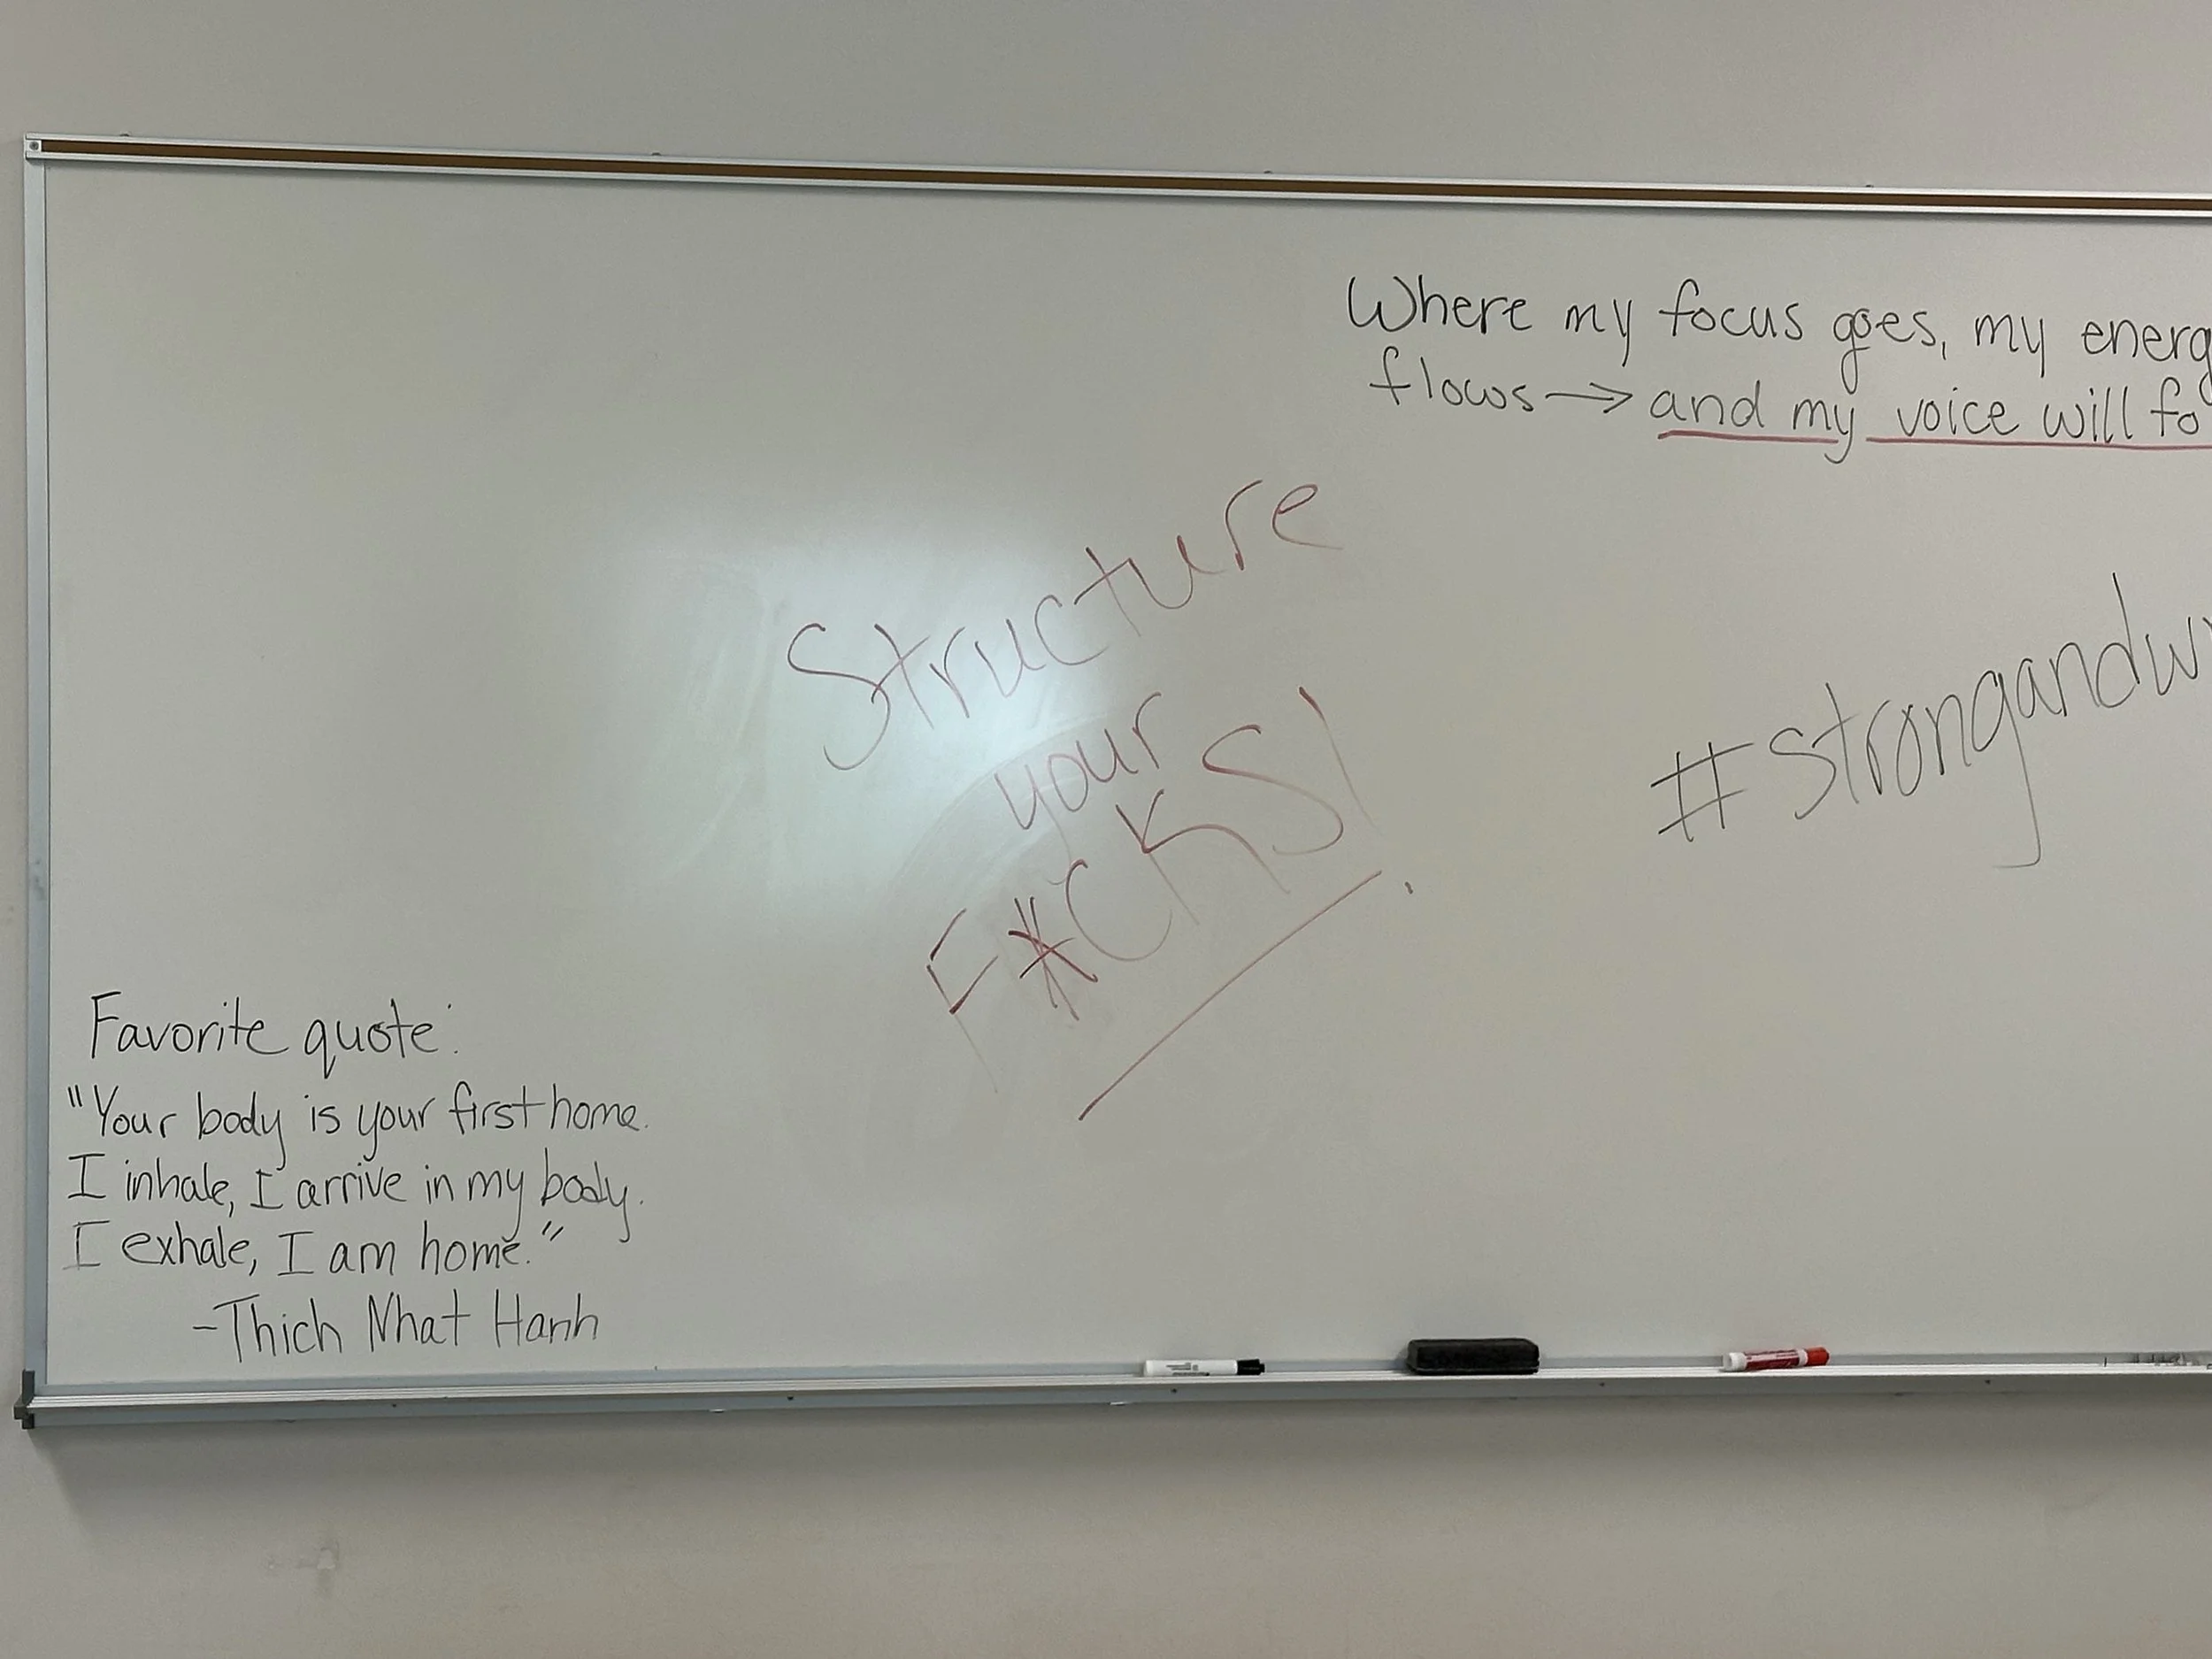 Where my focus goes, my energ
flows → and my voice will fo
Structure
your
F*CKS!
#strongandw
Favorite quote:
"Your body is your first home.
I inhale, I arrive in my body.
I exhale, I am home."
-Thich Nhat Hanh